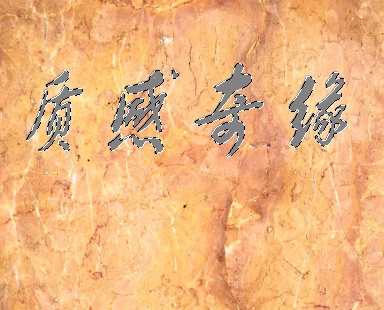 质感奇缘